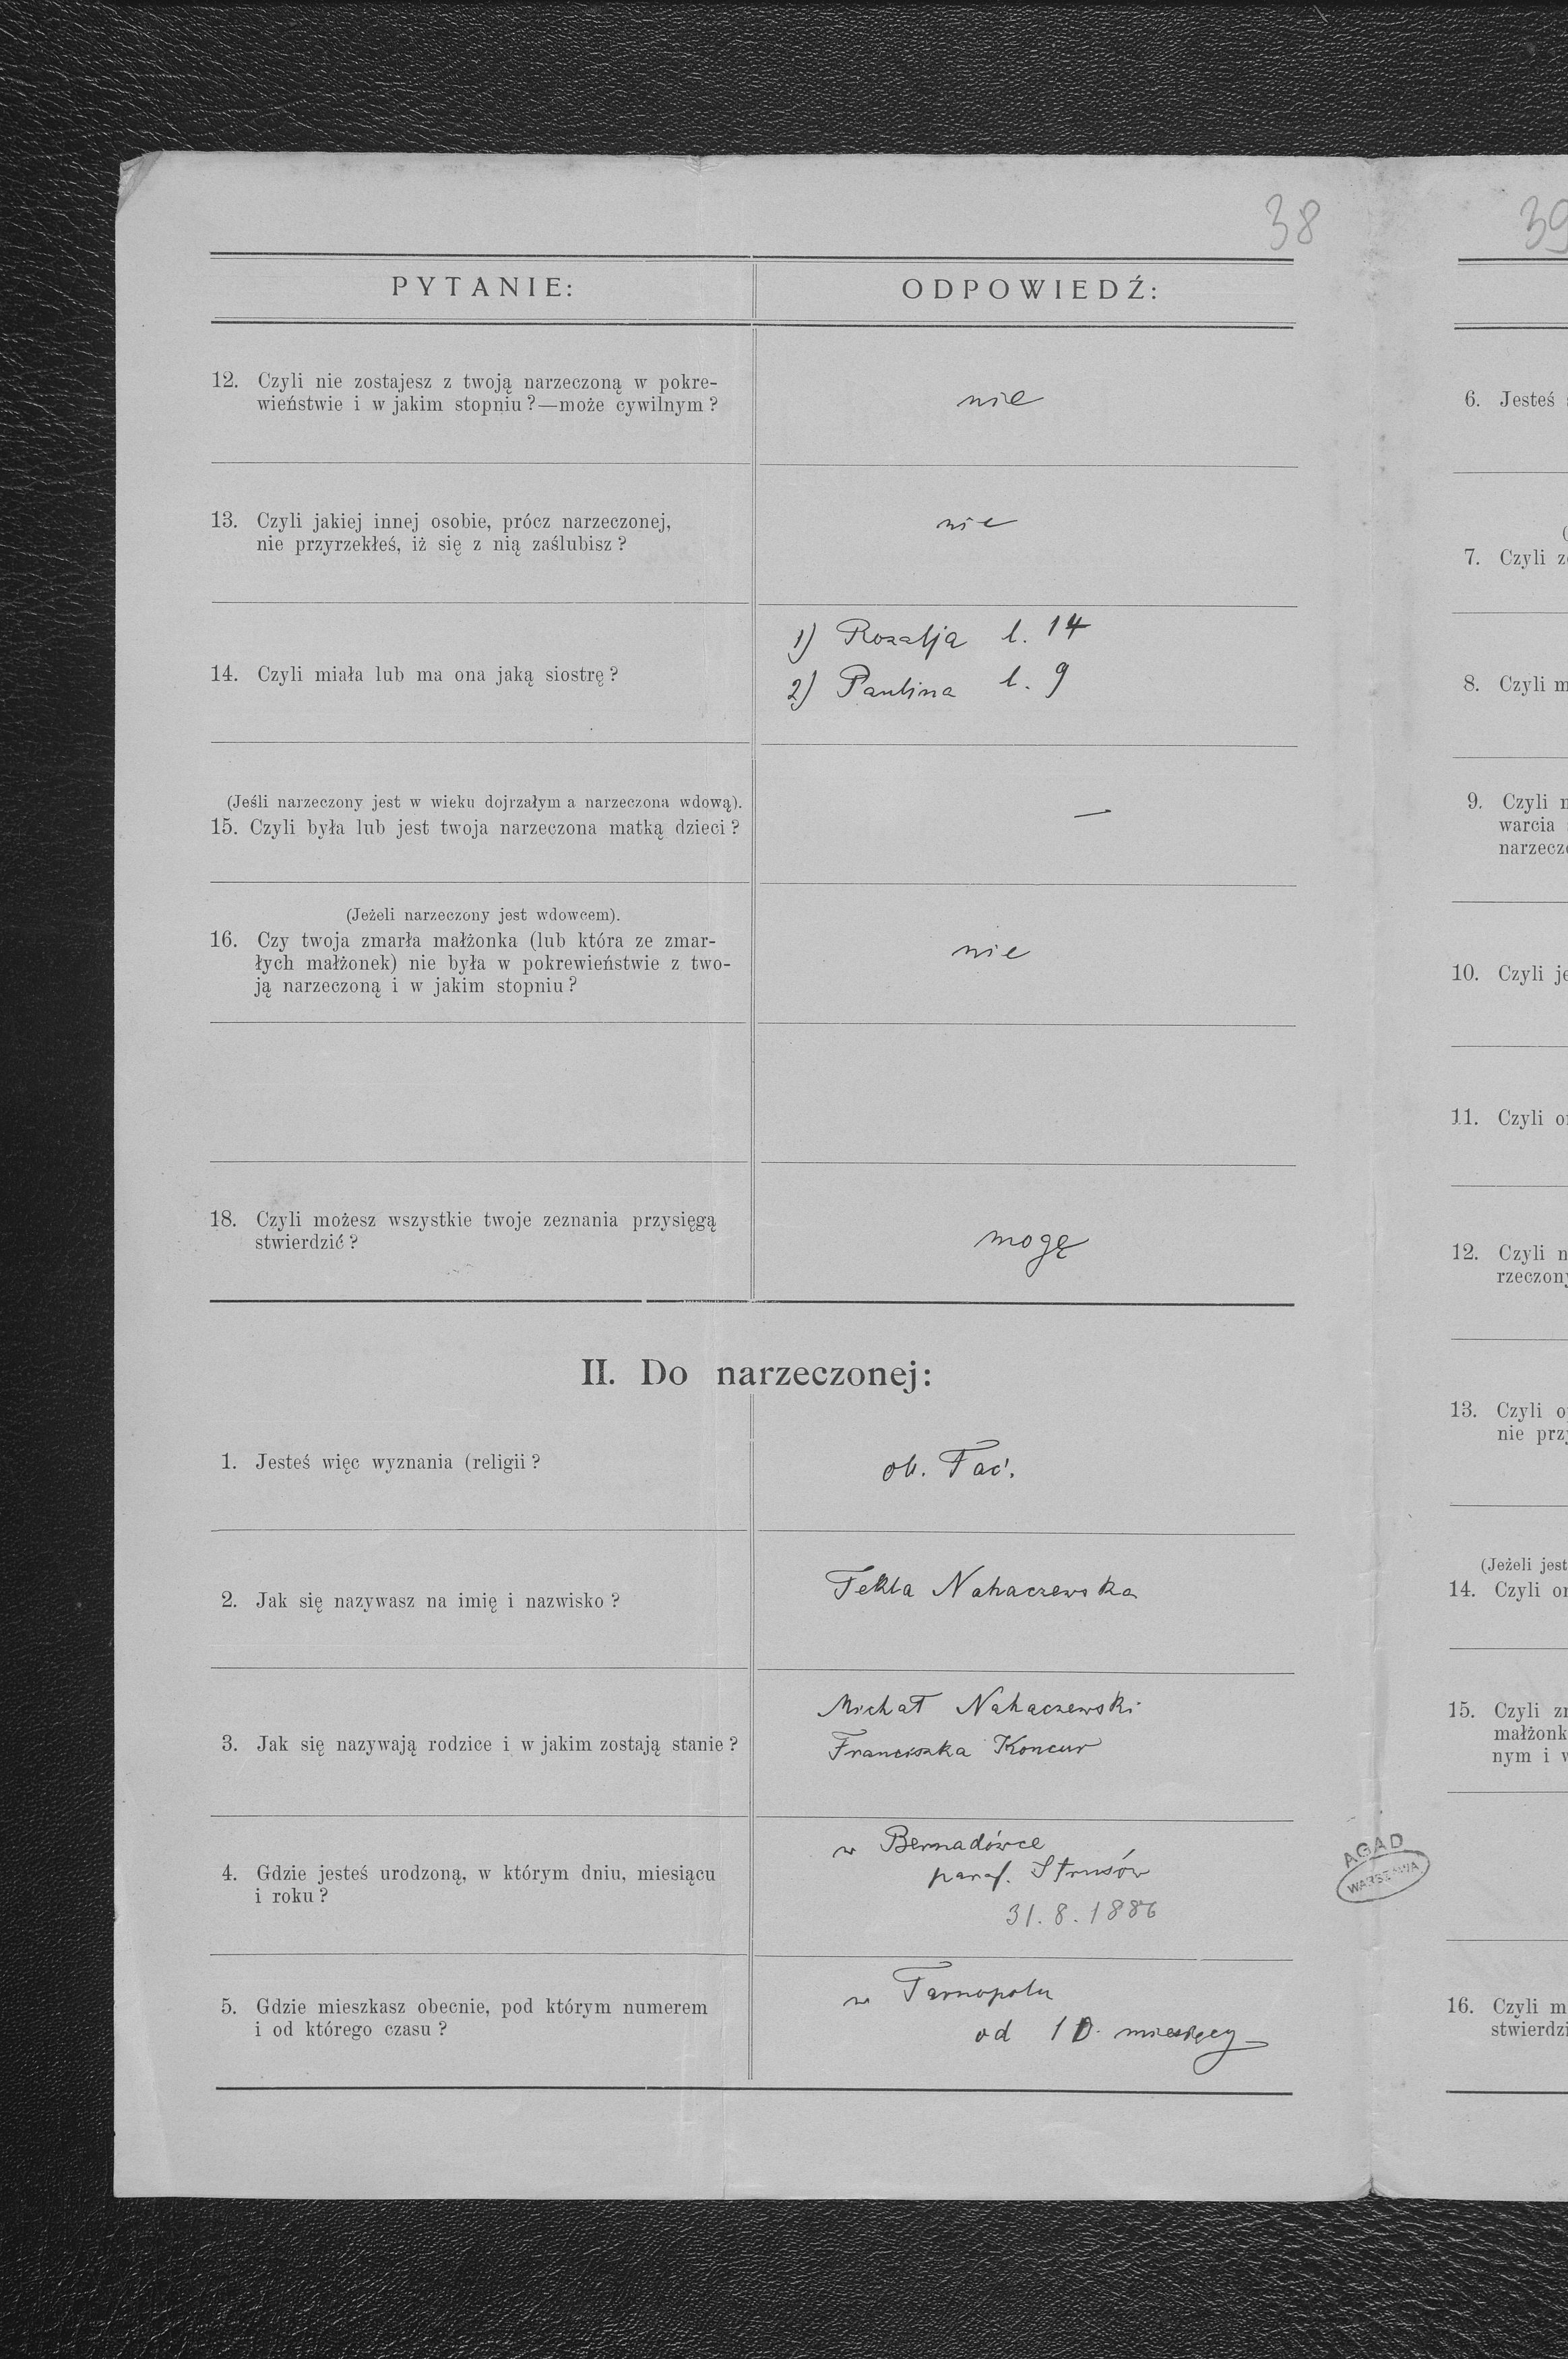 38
PYTANIE:
ODPOWIEDŹ:
12. Czyli nie zostajesz z twoją narzeczoną w pokre-
wieństwie i w jakim stopniu?—może cywilnym?
nie
13. Czyli jakiej innej osobie, prócz narzeczonej,
nie przyrzekłeś, iż się z nią zaślubisz?
nie
14. Czyli miała lub ma ona jaką siostrę?
1) Rozalja l. 14
2) Paulina l. 9
(Jeśli narzeczony jest w wieku dojrzałym a narzeczona wdową).
15. Czyli była lub jest twoja narzeczona matką dzieci?
—
(Jeżeli narzeczony jest wdowcem).
16. Czy twoja zmarła małżonka (lub która ze zmar-
łych małżonek) nie była w pokrewieństwie z two-
ją narzeczoną i w jakim stopniu?
nie
18. Czyli możesz wszystkie twoje zeznania przysięgą
stwierdzić?
mogę
II. Do narzeczonej:
1. Jesteś więc wyznania (religii?
ob. łać.
2. Jak się nazywasz na imię i nazwisko?
Tekla Nahaczewska
3. Jak się nazywają rodzice i w jakim zostają stanie?
Michał Nahaczewski
Franciszka Koncur
4. Gdzie jesteś urodzoną, w którym dniu, miesiącu
i roku?
w Bernadówce
paraf. Strusów
31.8.1886
5. Gdzie mieszkasz obecnie, pod którym numerem
i od którego czasu?
w Tarnopolu
od 10 miesięcy
AGAD
WARSZAWA
39
6. Jesteś
7. Czyli
8. Czyli
9. Czyli
warcia
10. Czyli
11. Czyli
12. Czyli
13. Czyli
nie
(Jeżeli jest
14. Czyli
15. Czyli
nym i
16. Czyli